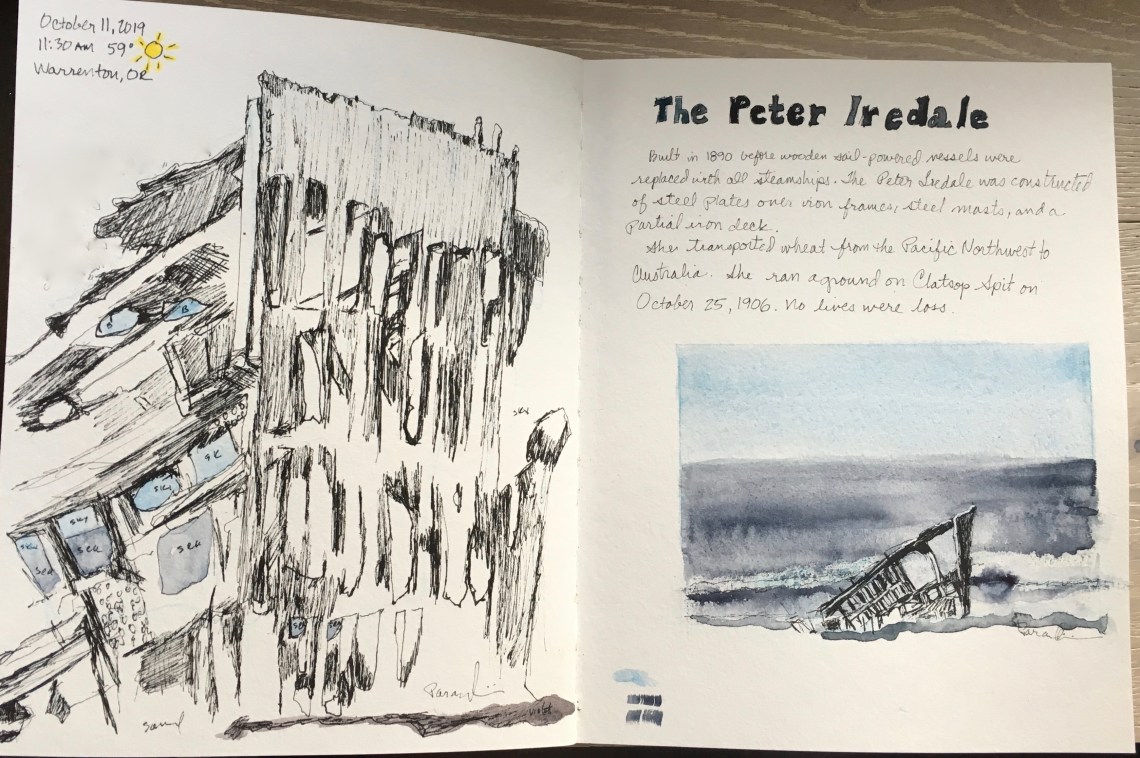 October 11, 2019
11:30 AM 59°
Warrenton, OR
B
B
sky
sky
sky
sky
sky
sea
sea
sea
sand
violet
The Peter Iredale
Built in 1890 before wooden sail-powered vessels were
replaced with all steamships. The Peter Iredale was constructed
of steel plates over iron frames, steel masts, and a
partial iron deck.
She transported wheat from the Pacific Northwest to
Australia. She ran aground on Clatsop Spit on
October 25, 1906. No lives were loss.